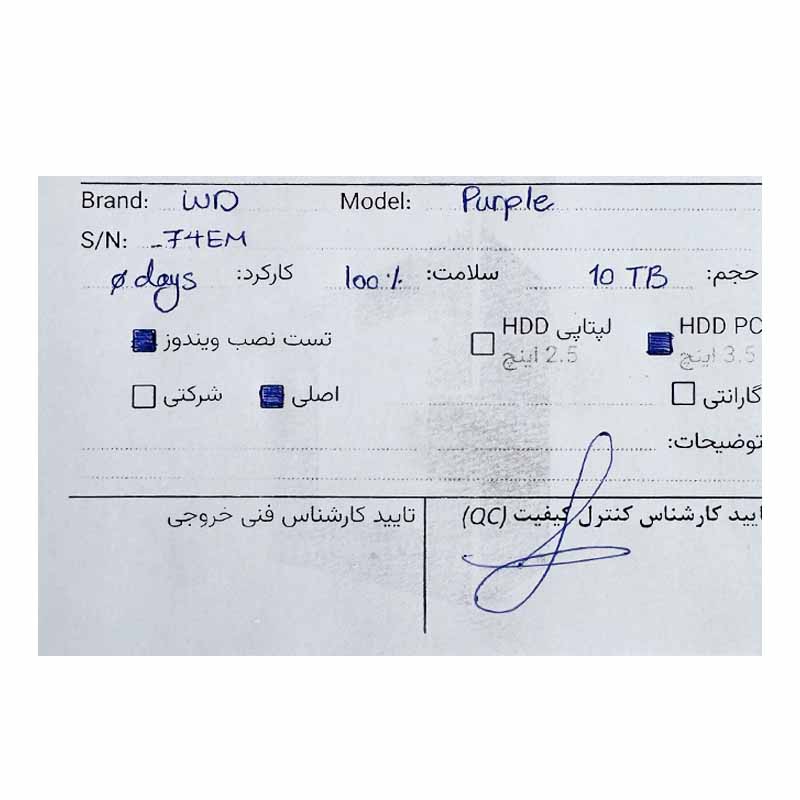 Brand: WD Model: Purple
S/N: _74EM
حجم: 10 TB سلامت: 100% کارکرد: ø days
HDD PC 3.5 اینچ HDD لپتاپی 2.5 اینچ تست نصب ویندوز
گارانتی اصلی شرکتی
توضیحات:
ایید کارشناس کنترل کیفیت (QC) تایید کارشناس فنی خروجی